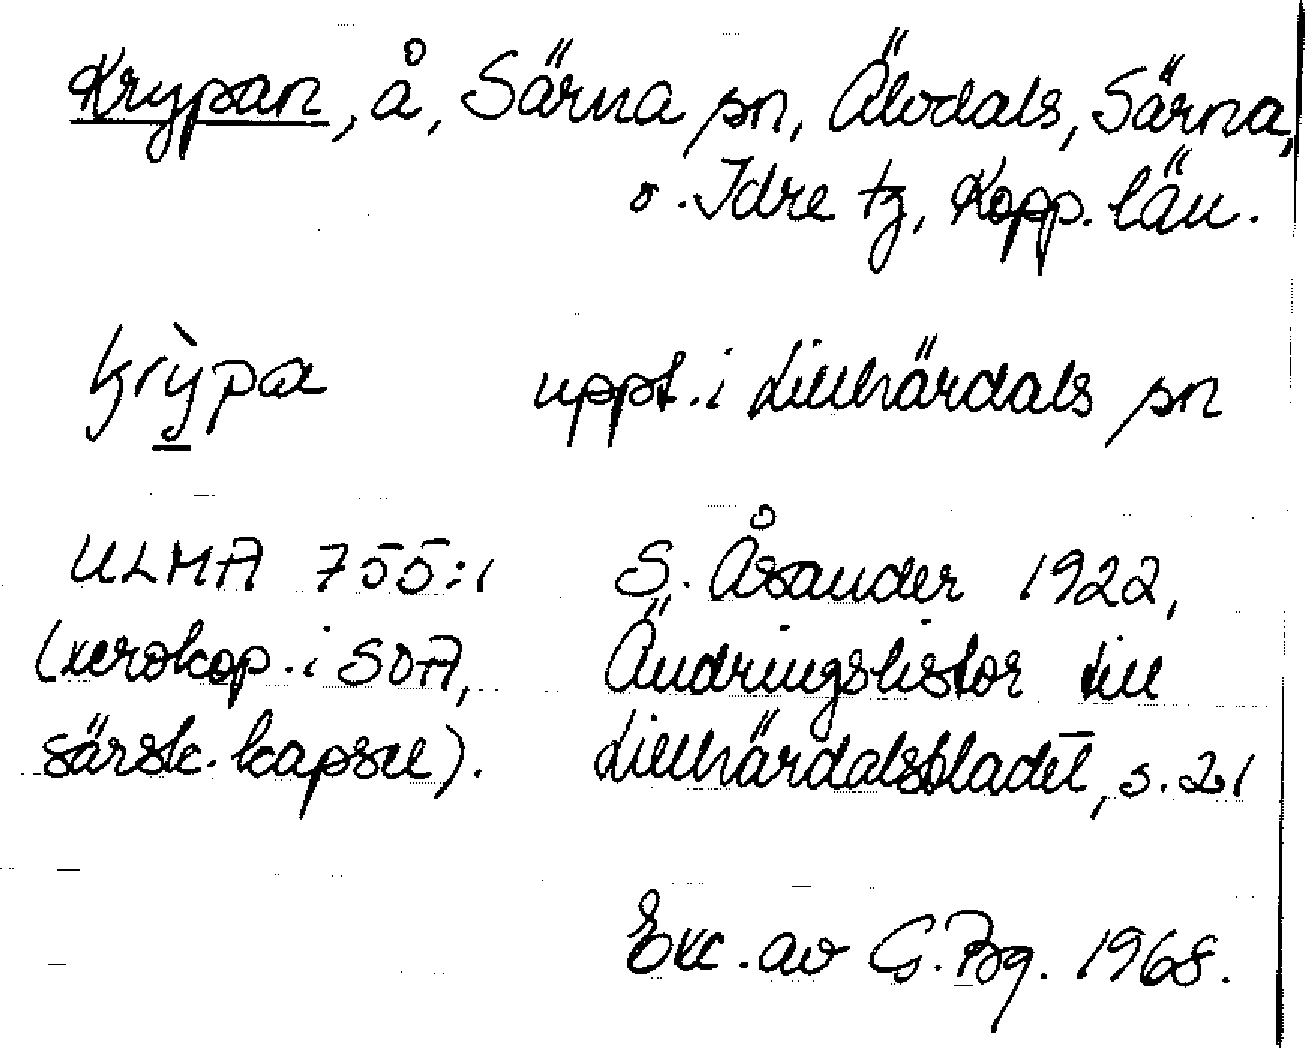 Krypan, å, Särna sn, Älvdals, Särna,
o. Idre tg, Kopp. län.
krỳpa uppt. i Lillhärdals sn
ULMA 755:1 S. Åsander 1922,
(xerokop. i SOA, Ändringslistor till
särsk. kapsel). Lillhärdalsbladet, s. 21
Exc. av G. Bg. 1968.